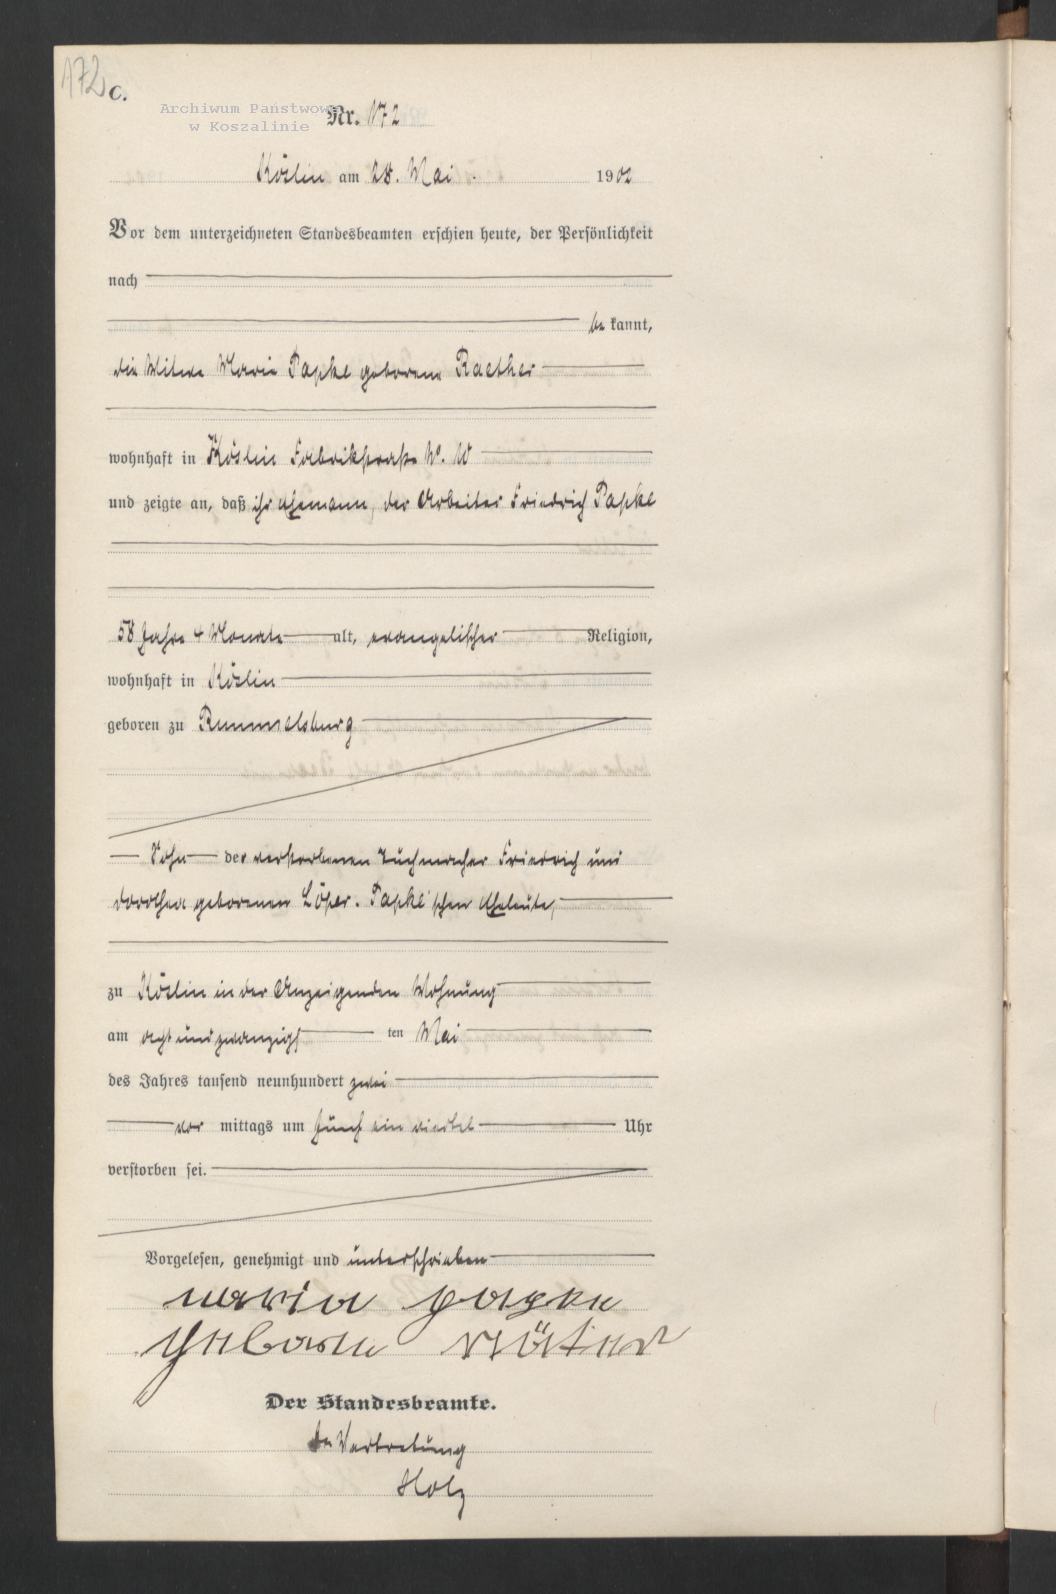 172
C.
Archiwum Państwowe
w Koszalinie
Nr. 172
Köslin am 28. Mai 1902
Vor dem unterzeichneten Standesbeamten erschien heute, der Persönlichkeit
nach
be kannt,
die Witwe Marie Papke geborene Raether
wohnhaft in Köslin Fabrikstraße N. 10
und zeigte an, daß ihr Ehemann, der Arbeiter Friedrich Papke
58 Jahre 4 Monate alt, evangelischer Religion,
wohnhaft in Köslin
geboren zu Rummelsburg
Sohn der verstorbenen Tuchmacher Friedrich und
Dorothea geborenen Löper-Papke'schen Eheleute,
zu Köslin in der Anzeigenden Wohnung
am acht und zwanzigs ten Mai
des Jahres tausend neunhundert zwei
vor mittags um fünf ein viertel Uhr
verstorben sei.
Vorgelesen, genehmigt und unterschrieben
Maria Papke
geborne Räter
Der Standesbeamte.
In Vertretung
Holz